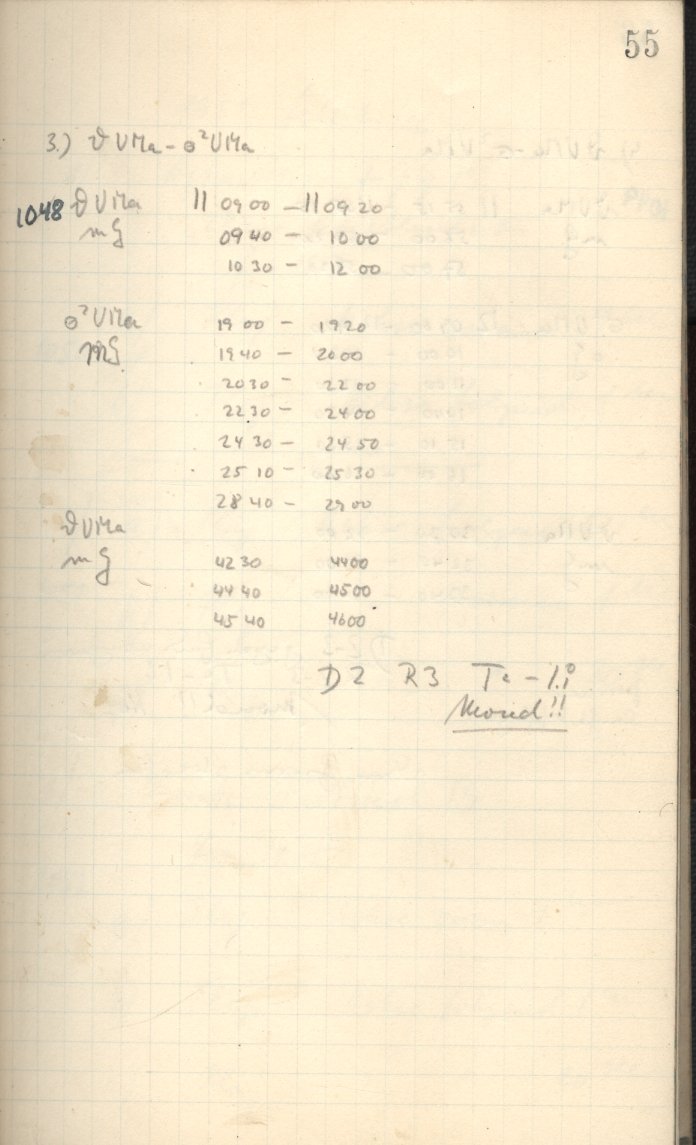 55
3.) ϑ UMa - σ² UMa
1048 ϑ UMa 11 09 00 - 11 09 20
mG 09 40 - 10 00
10 30 - 12 00
σ² UMa 19 00 - 19 20
mG 19 40 - 20 00
20 30 - 22 00
22 30 - 24 00
24 30 - 24 50
25 10 - 25 30
28 40 - 29 00
ϑ UMa
mG 42 30 44 00
44 40 45 00
45 40 46 00
D2 R3
Mond!!